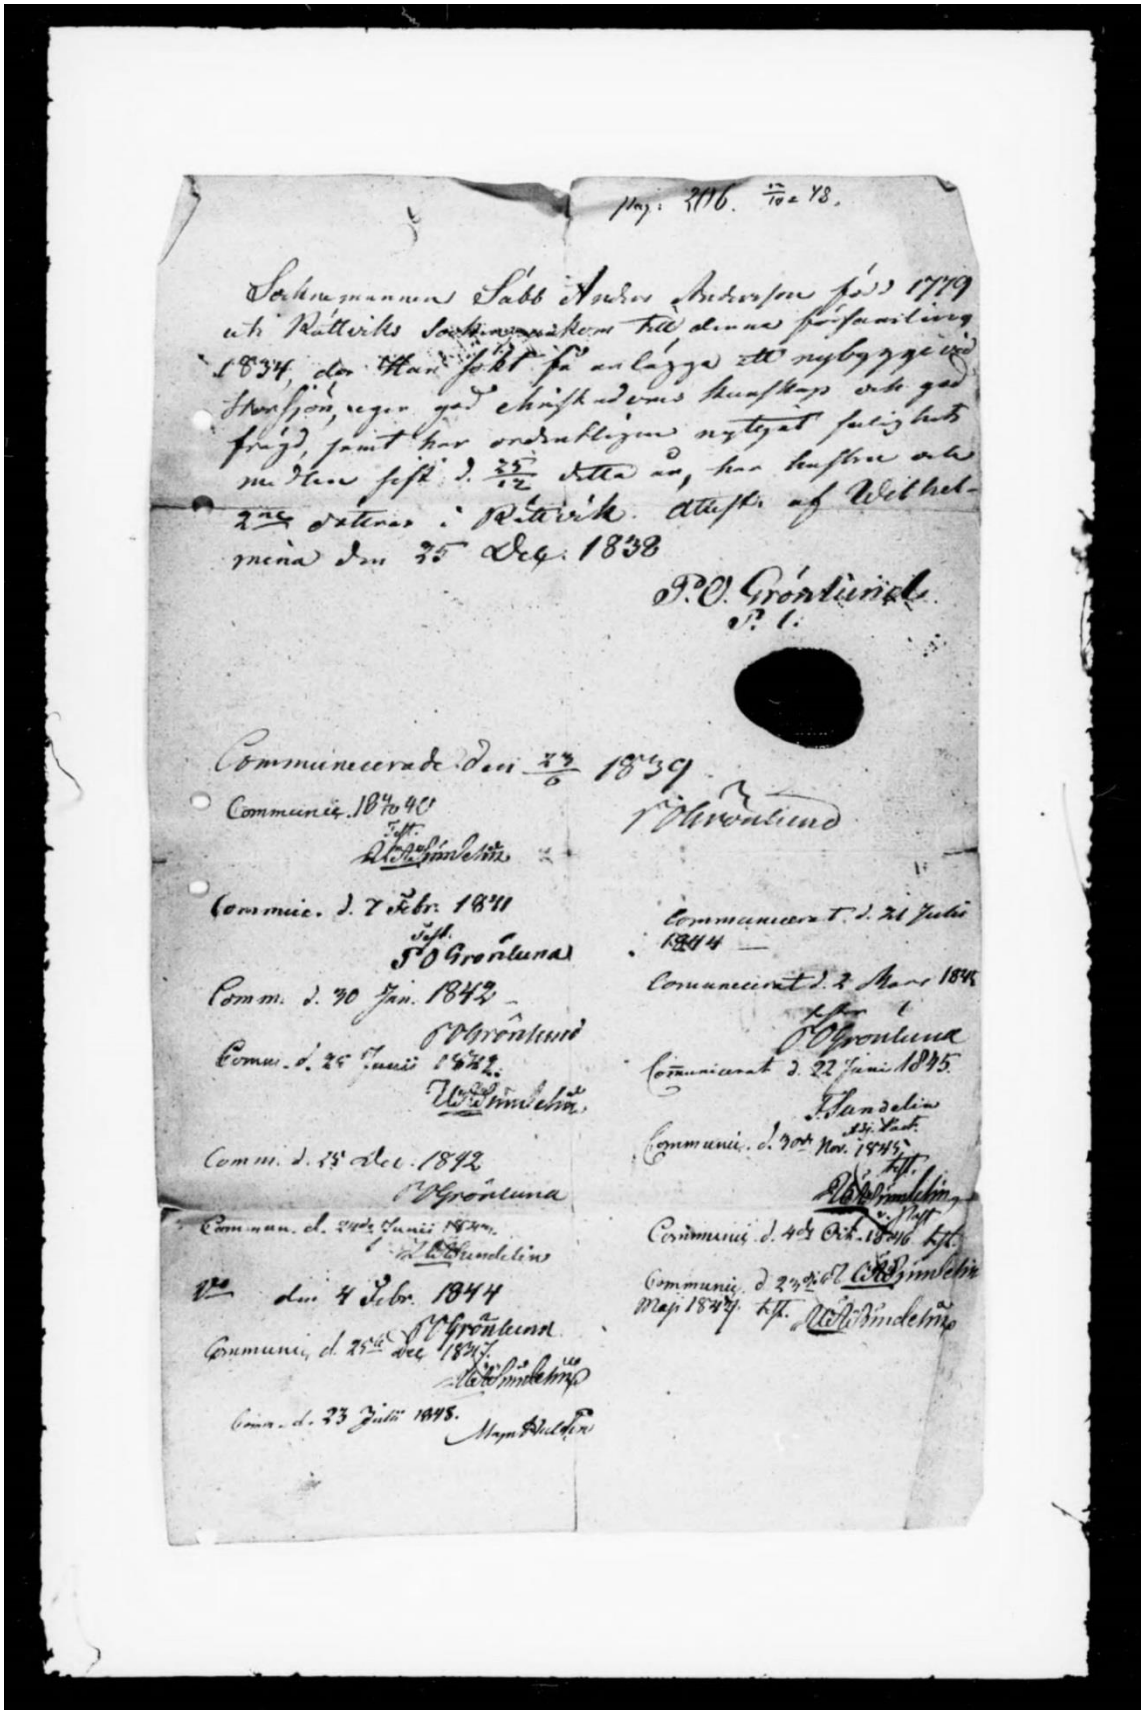 pag: 206. 12/10 48.
Sockenmannen Sabb Anders Andersson född 1779
uti Rättviks Socken ankom till denna församling
1834, der Han sökt få anlägga ett nybygge vid
Storsjön, eger god christendoms kunskap och god
frägd, samt har ordentligen nyttjat salighets
medlen sist d. 25/12 detta år, har hustru och
2ne döttrar i Rättvik. Attest. af Wilhel-
mina den 25 Dec: 1838
P.O. Grönlund
P. l.
Communicerade den 23/6 1839
P O Grönlund
Communic. 1840
Test.
Sundelin
Commuic. d. 7 Febr. 1841
Test.
P O Grönlund
Comm. d. 30 Jan. 1842
P O Grönlund
Comm. d. 25 Junii 1842.
Sundelin
Comm. d. 25 Dec. 1842
P O Grönlund
Commun. d. 24de Junii
Sundelin
den 4 Febr. 1844
P O Grönlund
Communic, d. 25te Dec 1847.
Sundelin
Comm. d. 23 Julii 1848.
Communicerat d. 21 Julii
1844
Comunicerat d. 2 Mars 1845
P O Grönlund
Communicerat d. 22 Juni 1845.
Sundelin
Adj. Past.
Communic. d. 30de Nov. 1845,
test.
Sundelin
v. Past
Communic. d. 4de Oct. 1846 test.
Sundelin
Communic. d 23die
Maji 1847. test. Sundelin